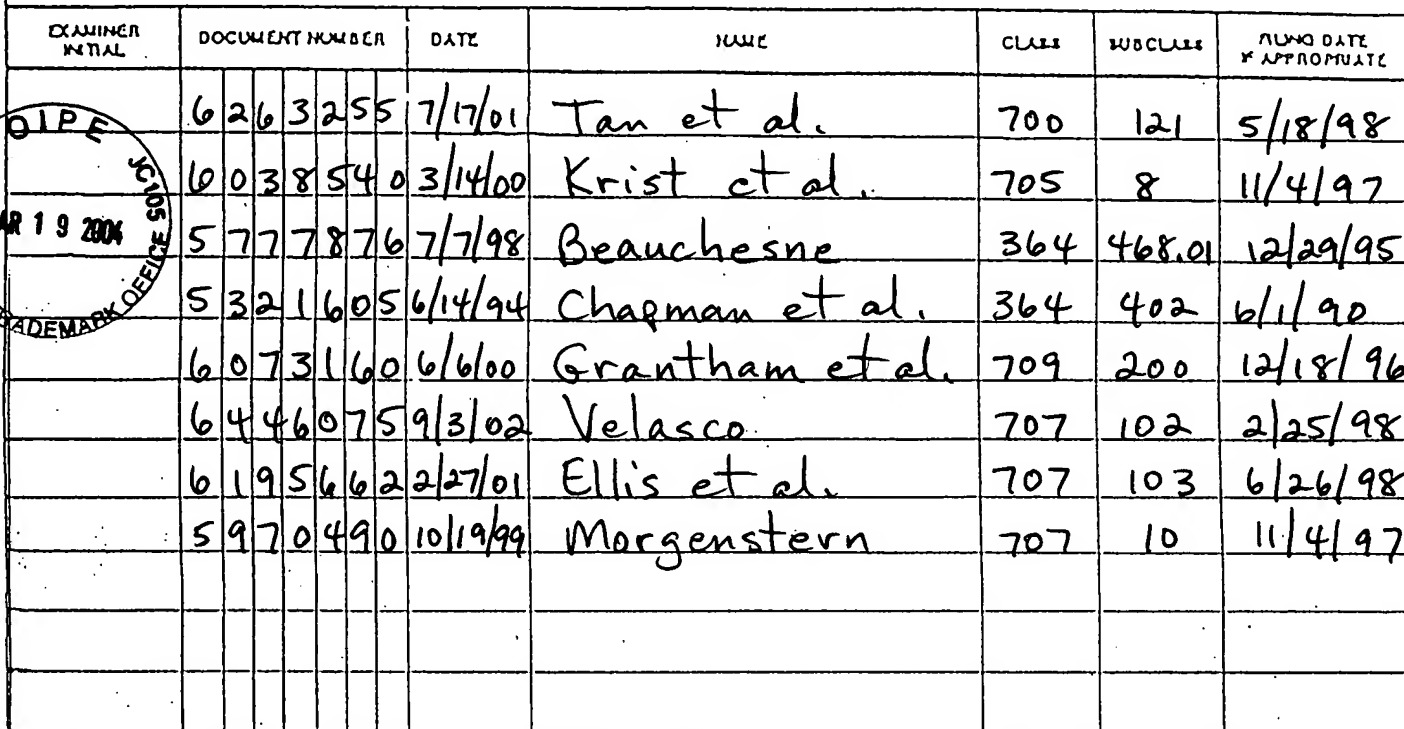 EXAMINER INITIAL DOCUMENT NUMBER DATE NAME CLASS SUBCLASS FILING DATE IF APPROPRIATE
6263255 7/17/01 Tan et al. 700 121 5/18/98
6038540 3/14/00 Krist et al. 705 8 11/4/97
5777876 7/7/98 Beauchesne 364 468.01 12/29/95
5321605 6/14/94 Chapman et al. 364 402 6/1/90
6073160 6/6/00 Grantham et al. 709 200 12/18/96
6446075 9/3/02 Velasco 707 102 2/25/98
6195662 2/27/01 Ellis et al. 707 103 6/26/98
5970490 10/19/99 Morgenstern 707 10 11/4/97
OIPE
JC105
AR 19 2004
ADEMARK OFFICE